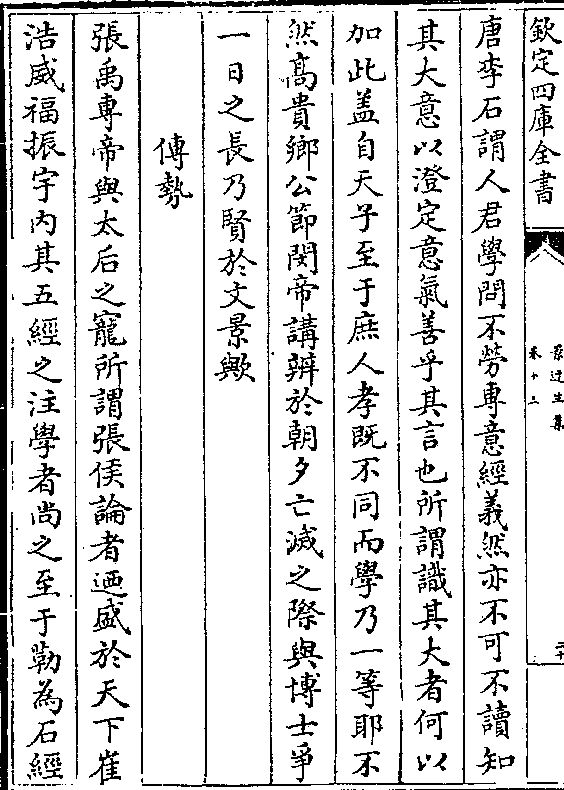 欽定四庫全書
景迂生集
卷十三
唐李石謂人君學問不勞專意經義然亦不可不讀知
其大意以澄定意氣善乎其言也所謂識其大者何以
加此盖自天子至于庶人孝既不同而學乃一等耶不
然高貴鄉公節閔帝講辨於朝夕亡滅之際與博士爭
一日之長乃賢於文景歟
傳勢
張禹專帝與太后之寵所謂張侯論者迺盛於天下崔
浩威福振宇内其五經之注學者尚之至于勒為石經